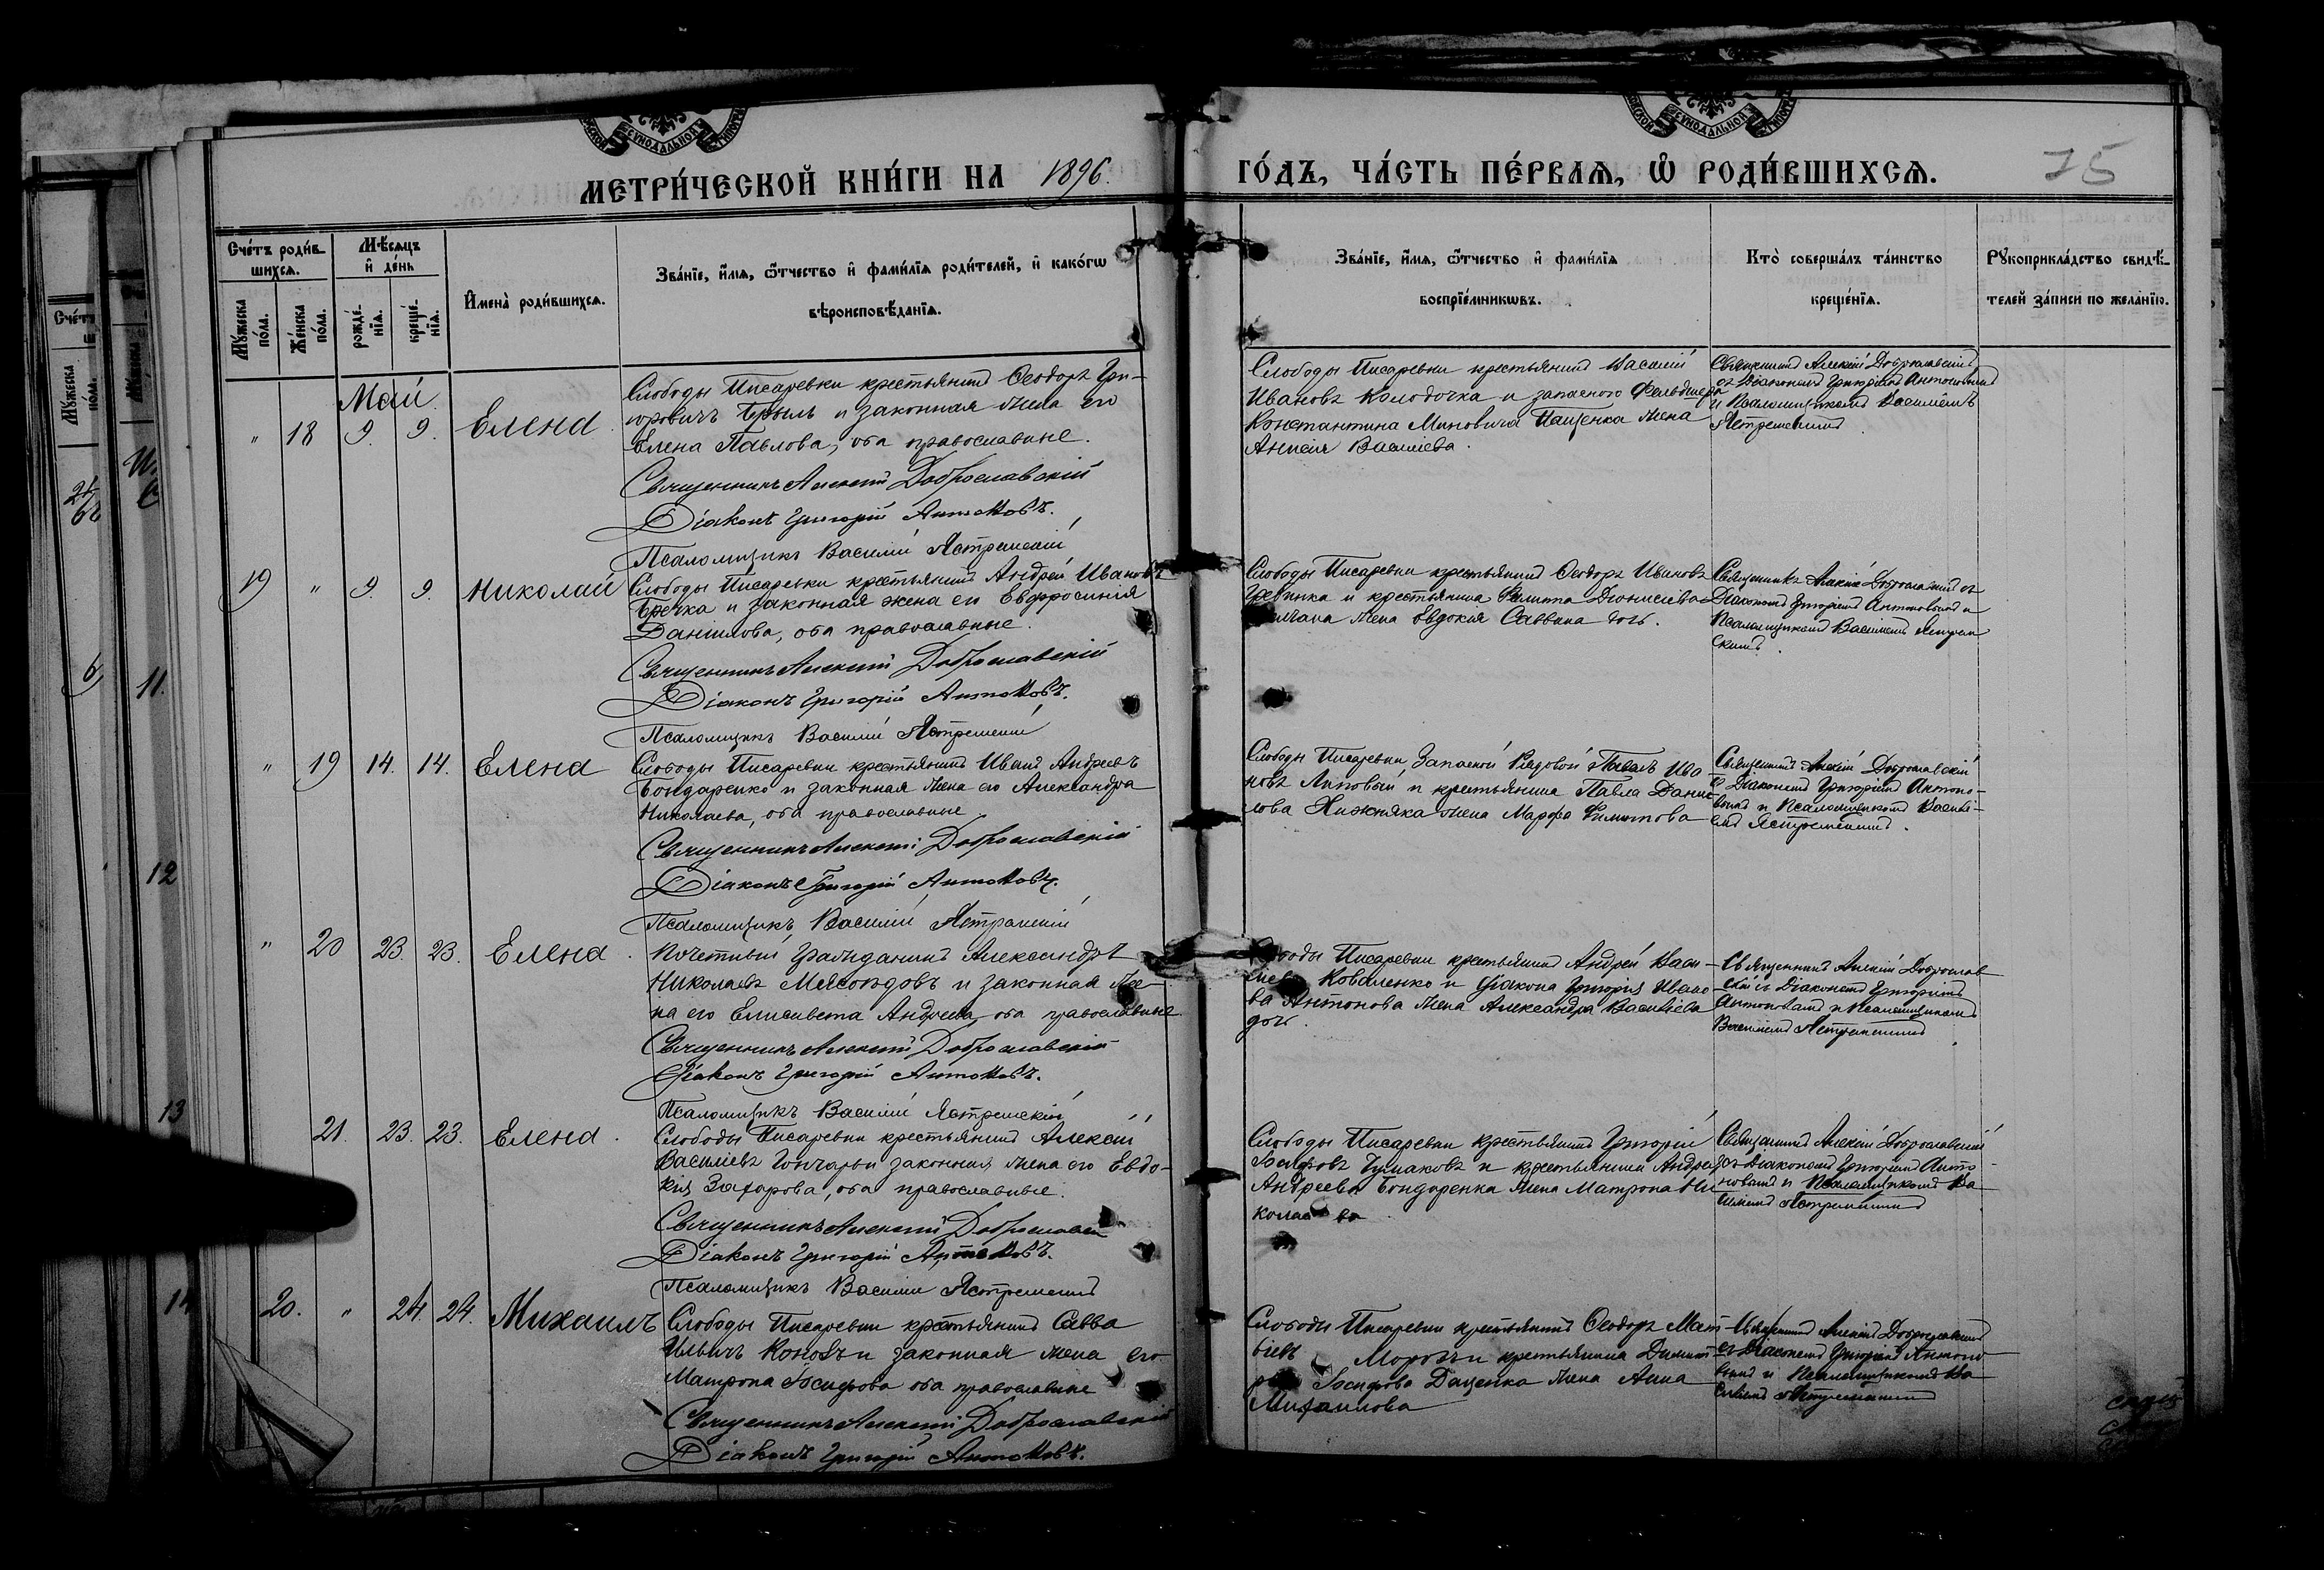 МЕТРИ́ЧЕСКОЙ КНИ́ГИ НА 1896.
ГО́ДЪ, ЧА́СТЬ ПЕ́РВАѦ, Ѡ҆ РОДИ́ВШИХСѦ.
75
Сче́тъ роди́в-
шихсѧ.
Мѣ́сѧцъ
и҆ де́нь
Мꙋ́жеска
по́ла.
Же́нска
по́ла.
рожде́-
нїѧ.
креще́-
нїѧ.
И҆мена̀ роди́вшихсѧ.
Зва́нїе, и҆́мѧ, ѻ҆́тчество и҆ фами́лїѧ роди́телей, и҆ како́гѡ
вѣроисповѣ́данїѧ.
Зва́нїе, и҆́мѧ, ѻ҆́тчество и҆ фами́лїѧ
воспрїе́мникѡвъ.
Кто̀ соверша́лъ та́инство
креще́нїѧ.
Рꙋкоприкла́дство свидѣ́-
телей за́писи по жела́нїю.
Май.
" 18 9. 9. Елена.
Слободы Писаревки крестьянинъ Ѳеодоръ Гри-
горовичъ и законная жена его
Елена Павлова, оба православные.
Священникъ Алексій Доброславскій
Діаконъ Григорій Антоновъ.
Псаломщикъ Василій Ястремскій
Слободы Писаревки крестьянинъ Василій
Ивановъ Колодочка и запасного Фельдшера
Константина Миновича Пащенка жена
Анисія Василіева.
Священникъ Алексій Доброславскій
съ Діакономъ Григоріемъ Антоновымъ
и Псаломщикомъ Василіемъ
Ястремскимъ.
19 " 9. 9. Николай
Слободы Писаревки крестьянинъ Андрей Ивановъ
Гречка и законная жена его Евфросинія
Даніилова, оба православные.
Священникъ Алексій Доброславскій
Діаконъ Григорій Антоновъ.
Псаломщикъ Василій Ястремскій
Слободы Писаревки крестьянинъ Ѳеодоръ Ивановъ
и крестьянина Филиппа Діонисіева
жена Евдокія Саввина дочь.
Священникъ Алексій Доброславскій съ
Діакономъ Григоріемъ Антоновымъ и
Псаломщикомъ Василіемъ Ястрем
скимъ.
" 19 14. 14. Елена
Слободы Писаревки крестьянинъ Иванъ Андреевъ
Бондаренко и законная жена его Александра
Николаева, оба православные
Священникъ Алексій Доброславскій
Діаконъ Григорій Антоновъ.
Псаломщикъ Василій Ястремскій
Слободы Писаревки, Запасной Рядовой Павелъ Ива
новъ Липовый и крестьянина Павла Дани
лова Хижняка жена Марфа Филиппова
Священникъ Алексій Доброславскій
съ Діакономъ Григоріемъ Антоно-
вымъ и Псаломщикомъ Василі-
емъ Ястремскимъ.
" 20 23. 23. Елена.
Почетный Гражданинъ Александръ
Николаевъ Мясоѣдовъ и законная же-
на его Елисавета Андреева, оба православные
Священникъ Алексій Доброславскій
Діаконъ Григорій Антоновъ.
Псаломщикъ Василій Ястремскій
Слободы Писаревки крестьянинъ Андрей Васи-
Коваленко и Діакона Григорія Ивано
ва Антонова жена Александра Василіева
дочь.
Священникъ Алексій Доброслав
скій съ Діакономъ Григоріемъ
Антоновымъ и Псаломщикомъ
Василіемъ Ястремскимъ.
21. 23. 23. Елена.
Слободы Писаревки крестьянинъ Алексій
Василіевъ Гончаръ и законная жена его Евдо-
кія Захарова, оба православные.
Священникъ Алексій Доброславскій
Діаконъ Григорій Антоновъ.
Псаломщикъ Василій Ястремскій
Слободы Писаревки крестьянинъ Григорій
Іосифовъ Чумаковъ и крестьянина Андрея
Андреева Бондаренка жена Матрона Ни
колаева
Священникъ Алексій Доброславскій
съ Діакономъ Григоріемъ Анто-
новымъ и Псаломщикомъ Ва
силіемъ Ястремскимъ
20. " 24. 24. Михаилъ
Слободы Писаревки крестьянинъ Савва
Ильичъ и законная жена его
Матрона Іосифова оба православные
Священникъ Алексій Доброславскій
Діаконъ Григорій Антоновъ.
Слободы Писаревки крестьянинъ Ѳеодоръ Мат
віевъ Морозъ и крестьянина Димит
Іосифова Даценка жена Анна
Михаилова
Священникъ Алексій Доброславскій
съ Діакономъ Григоріемъ Антоно
вымъ и Псаломщикомъ Ва
силіемъ Ястремскимъ
11.
12
13